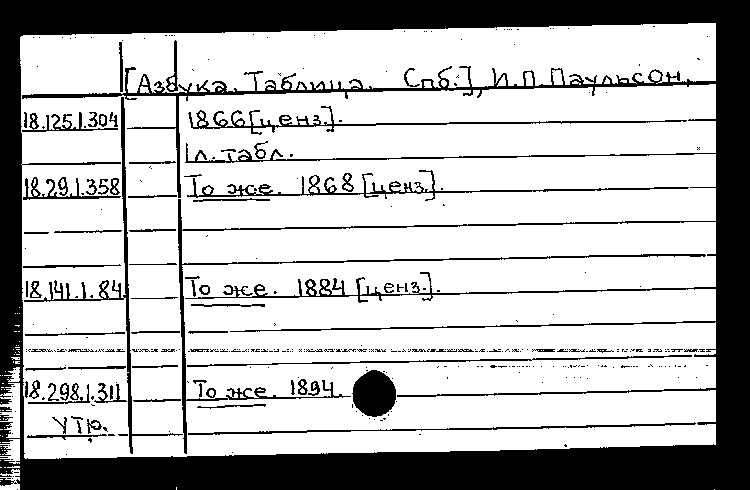 [Азбука. Таблица. Спб.], И.П.Паульсон,
18.125.1.304 1866[ценз.].
1л. табл.
18.29.1.358 То же. 1868 [ценз.].
18.141.1.84. То же. 1884 [ценз.].
18.298.1.311 То же. 1894.
утр.